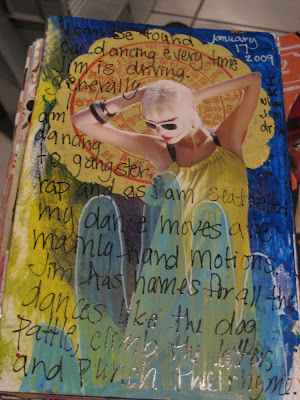 I can be found
car dancing every time
Jim is driving.
generally
I
am
dancing
to gangster
rap and as I am seatbelted
my dance moves are
mainly hand motions.
Jim has names for all the
dances like the dog
paddle, climb the
and punch the rhyme.
January
17
2009